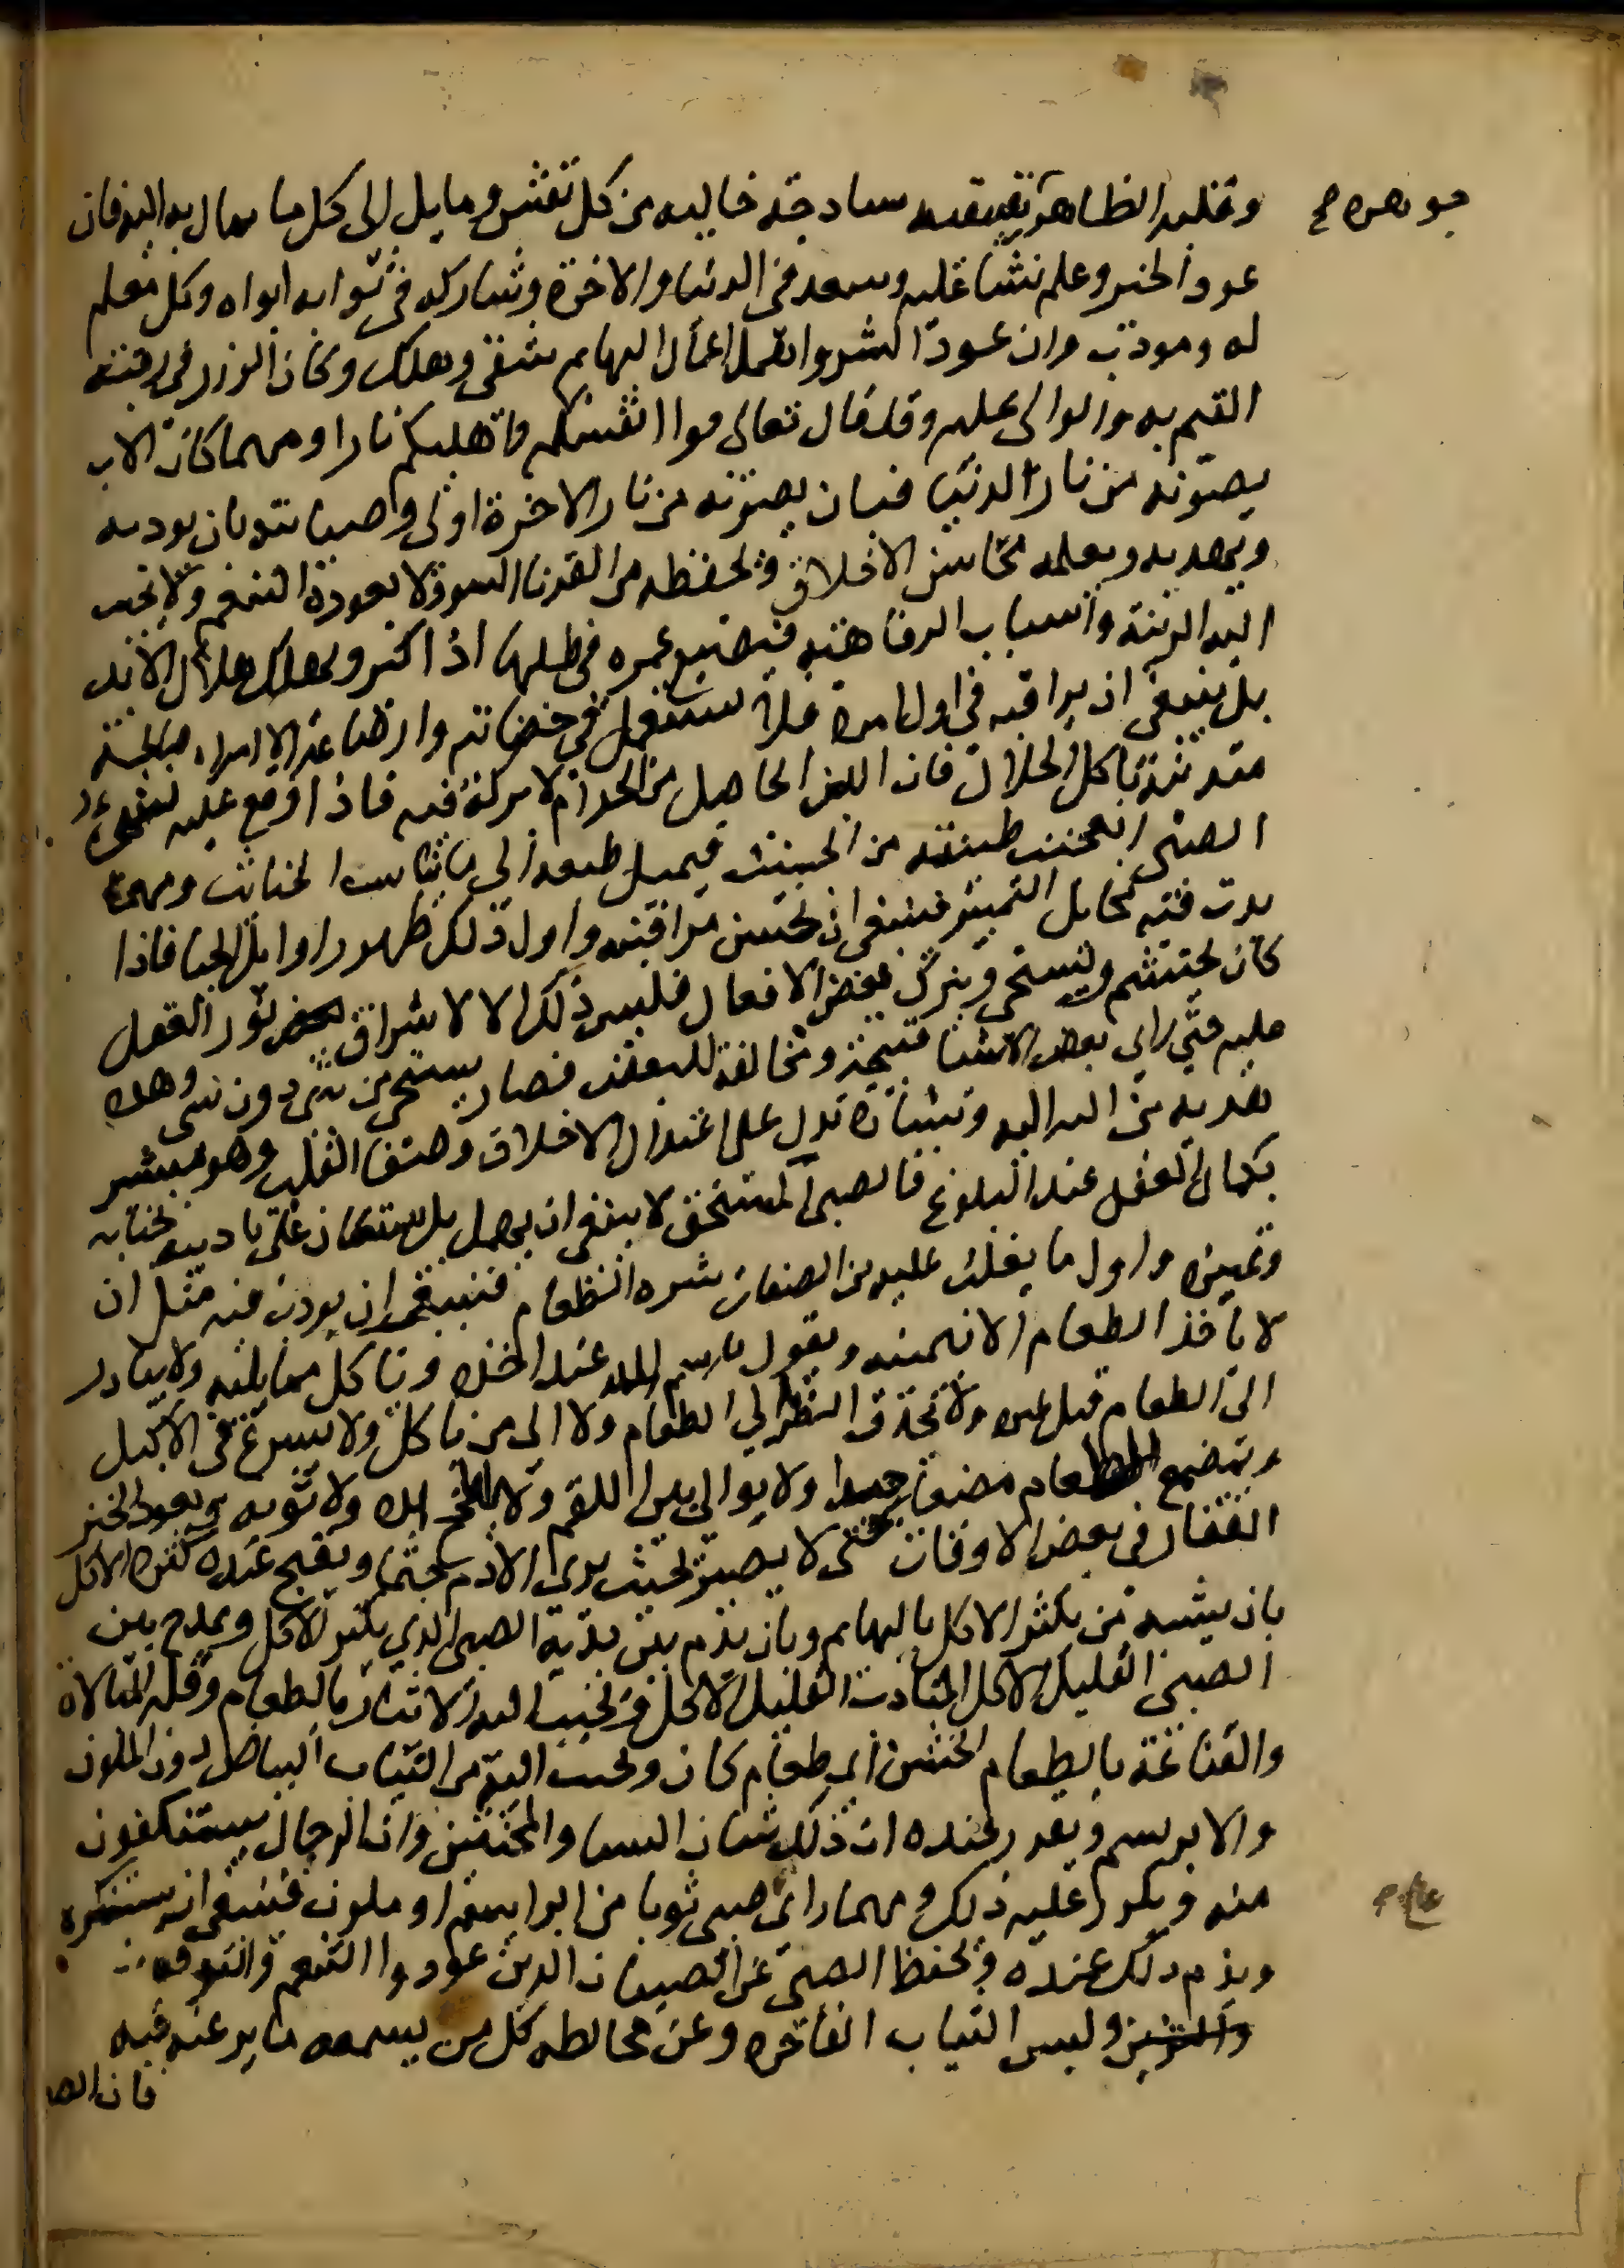 جوهره
وقلبه الطاهر نفيسه ساذجة خاليه من كل نقش ومايل الى كل ما يمال به اليه فان
عود الخير وعلم نشا عليه وسعد فى الدنيا والاخرة وشاركه فى ثوابه ابواه وكل معلم
له ومودب وان عود الشر واهمل اهمال البهايم شقى وهلك وكان الوزر فى رقبة
القيم به والوالى عليه وقد قال تعالى قوا انفسكم واهليكم نارا ومهما كان الاب
يصونه من نار الدنيا فبان يصونه من نار الاخرة اولى وصيانته بان يودبه
ويهذبه ويعلمه محاسن الاخلاق ويحفظه من القرنا السوو لا يعوده التنعم ولا يحبب
اليه الزينة واسباب الرفاهية فيضيع عمره فى طلبها اذا اكبر ويهلك هلاك الابد
بل ينبغى ان يراقبه فى اول امره فلا يستعمل فى حضانته وارضاعه الا امراه صالحة
متدينة تاكل الحلال فان اللبن الحاصل من الحرام لا بركة فيه فاذا وقع عليه نشو
الصبى انعجنت طينته من الخبيث فيميل طبعه الى ما يناسب الخبائث ومهما
بدت فيه مخايل التمييز فينبغى ان يحسن مراقبته واول ذلك ظهور اوايل الحيا فاذا
كان يحتشم ويستحى ويترك بعض الافعال فليس ذلك الا لاشراق نور العقل
عليه حتى راى بعض الاشيا قبيحة ومخالفة للبعض فصار يستحى من شى دون شى وهذه
هديه من الله اليه وبشارة تدل على اعتدال الاخلاق وصفا القلب وهو مبشر
بكمال العقل عند البلوغ فالصبى المستحى لا ينبغى ان يهمل بل يستعان على تاديبه بحيايه
وتمييزه واول ما يغلب عليه من الصفات شره الطعام فينبغى ان يودب فيه مثل ان
لا ياخذ الطعام الا بيمينه ويقول بسم الله عند اخذه وياكل مما يليه ولا يبادر
الى الطعام قبل غيره ولا يحدق النظر الى الطعام ولا الى من ياكل ولا يسرع فى الاكل
ويمضع الطعام مضغا جيدا ولا يوالى بين اللقم ولا يلطخ يده ولا ثوبه ويعود الخبز
القفار فى بعض الاوقات حتى لا يصير بحيث يرى الادم حتما ويقبح عنده كثرة الاكل
بان يشبه من يكثر الاكل بالبهايم وبان يذم بين يديه الصبى الذى يكثر الاكل ويمدح بين
الصبى القليل الاكل المتادب القليل الاكل ويحبب اليه الايثار بالطعام وقلة المبالاة
والقناعة بالطعام الخشن اى طعام كان ويحبب اليه من الثياب البياض دون الملون
والابريسم ويقرر عنده ان ذلك شان النسا والمخنثين وان الرجال يستنكفون
منه ويكرر عليه ذلك ومهما راى صبى ثوبا من ابرايسم او ملون فينبغى ان يستنكره
ويذم ذلك عنده ويحفظ الصبى عن الصبيان الذين عودوا التنعم والترفه
ولبس الثياب الفاخره وعن مخالطه كل من يسمعه ما يرغبه فيه
فان الصبى